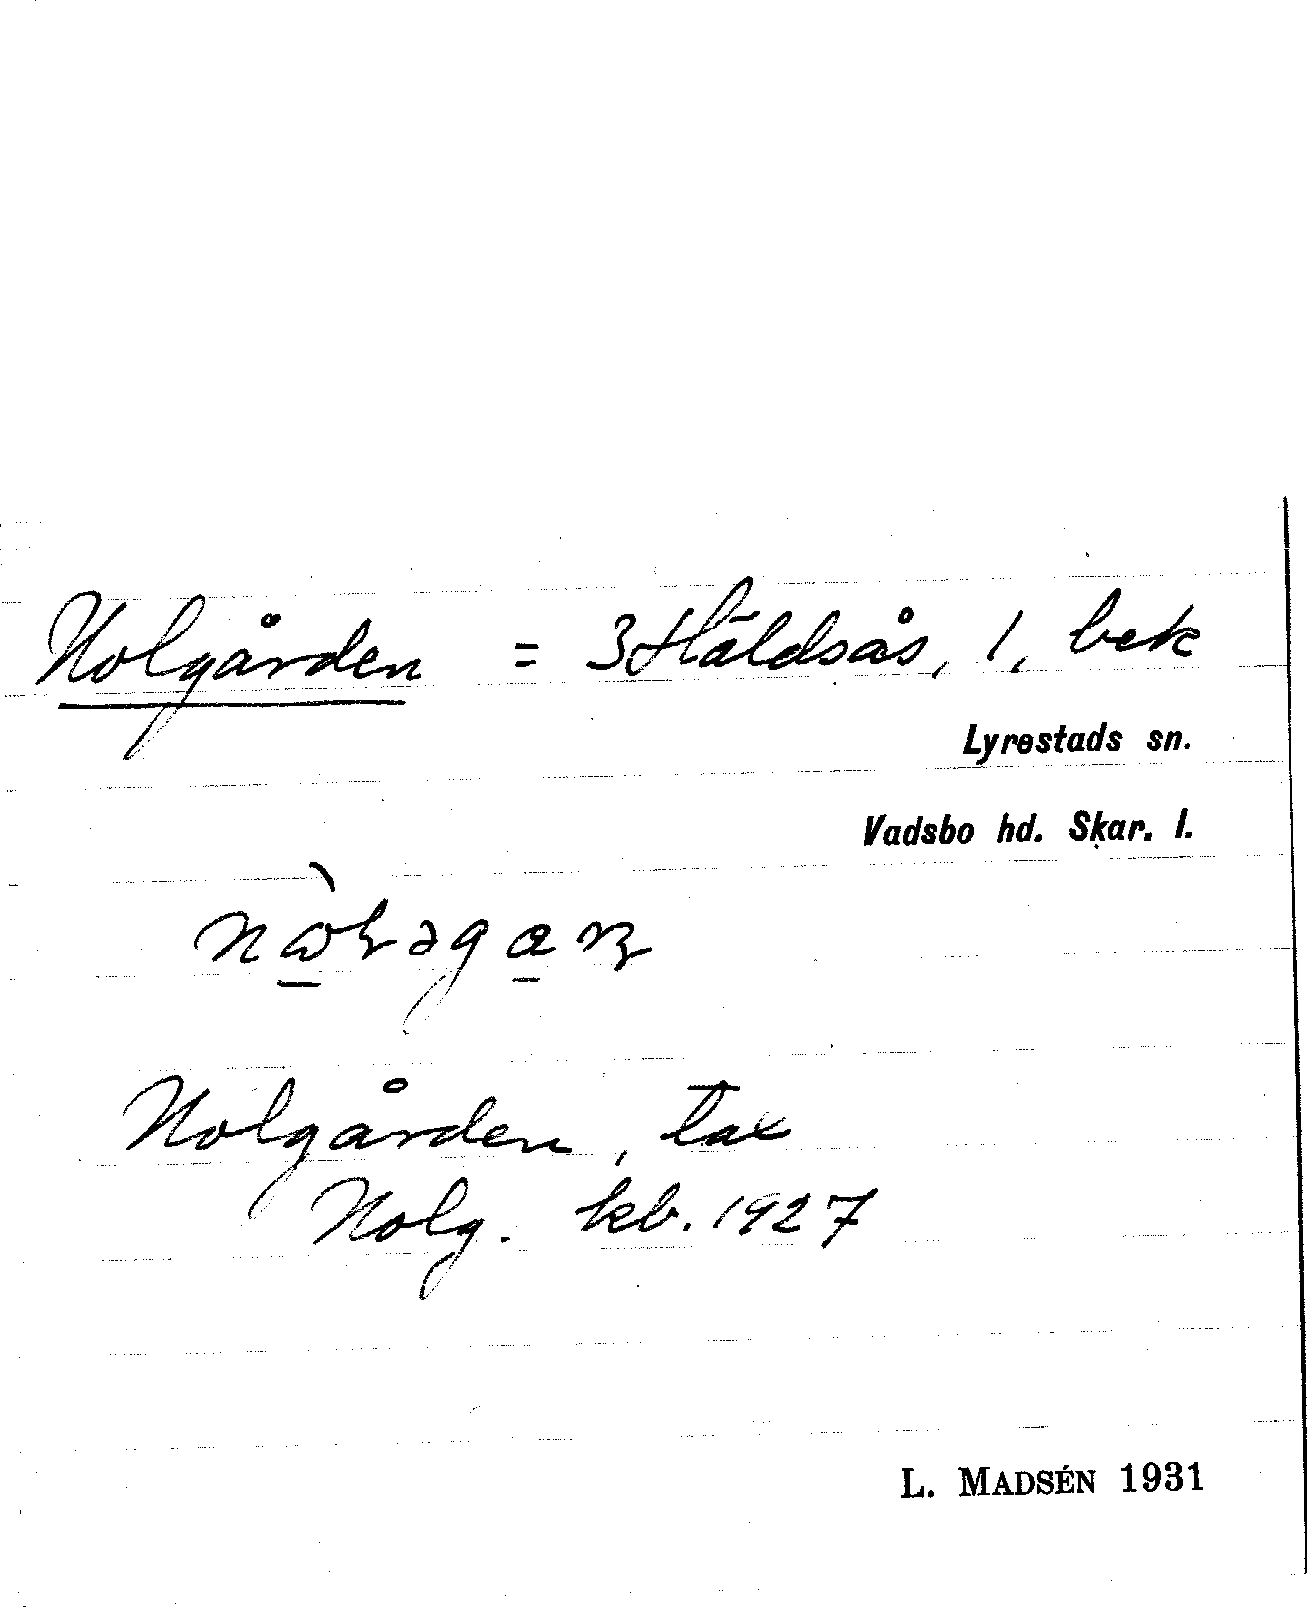 Nolgården = 3 Häldsås, 1, bek
Lyrestads sn.
Vadsbo hd. Skar. l.
Nolgården, tax
Nolg. kb. 1927
L. MADSÉN 1931